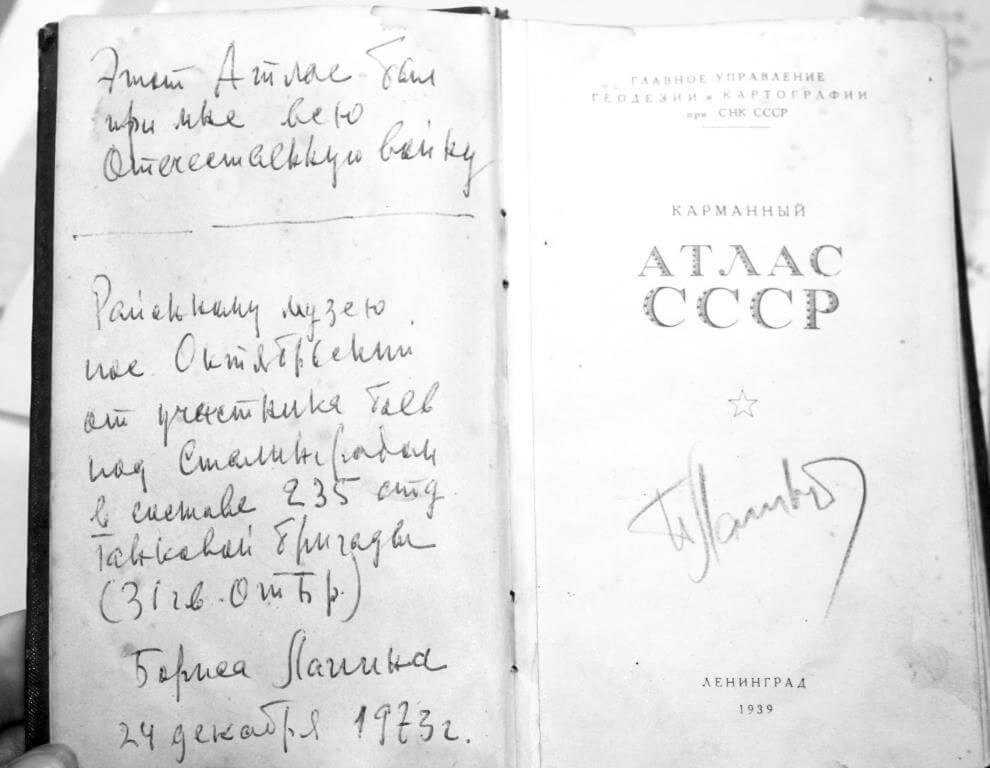 Этот Атлас был
при мне всю
Отечественную войну
Районному музею
пос. Октябрьский
от участника боев
под Сталинградом
в составе 235 отд
танковой бригады
(31 гв. От Бр.)
Бориса
24 декабря 1973 г.
ГЛАВНОЕ УПРАВЛЕНИЕ
ГЕОДЕЗИИ и КАРТОГРАФИИ
при СНК СССР
КАРМАННЫЙ
АТЛАС
СССР
ЛЕНИНГРАД
1939